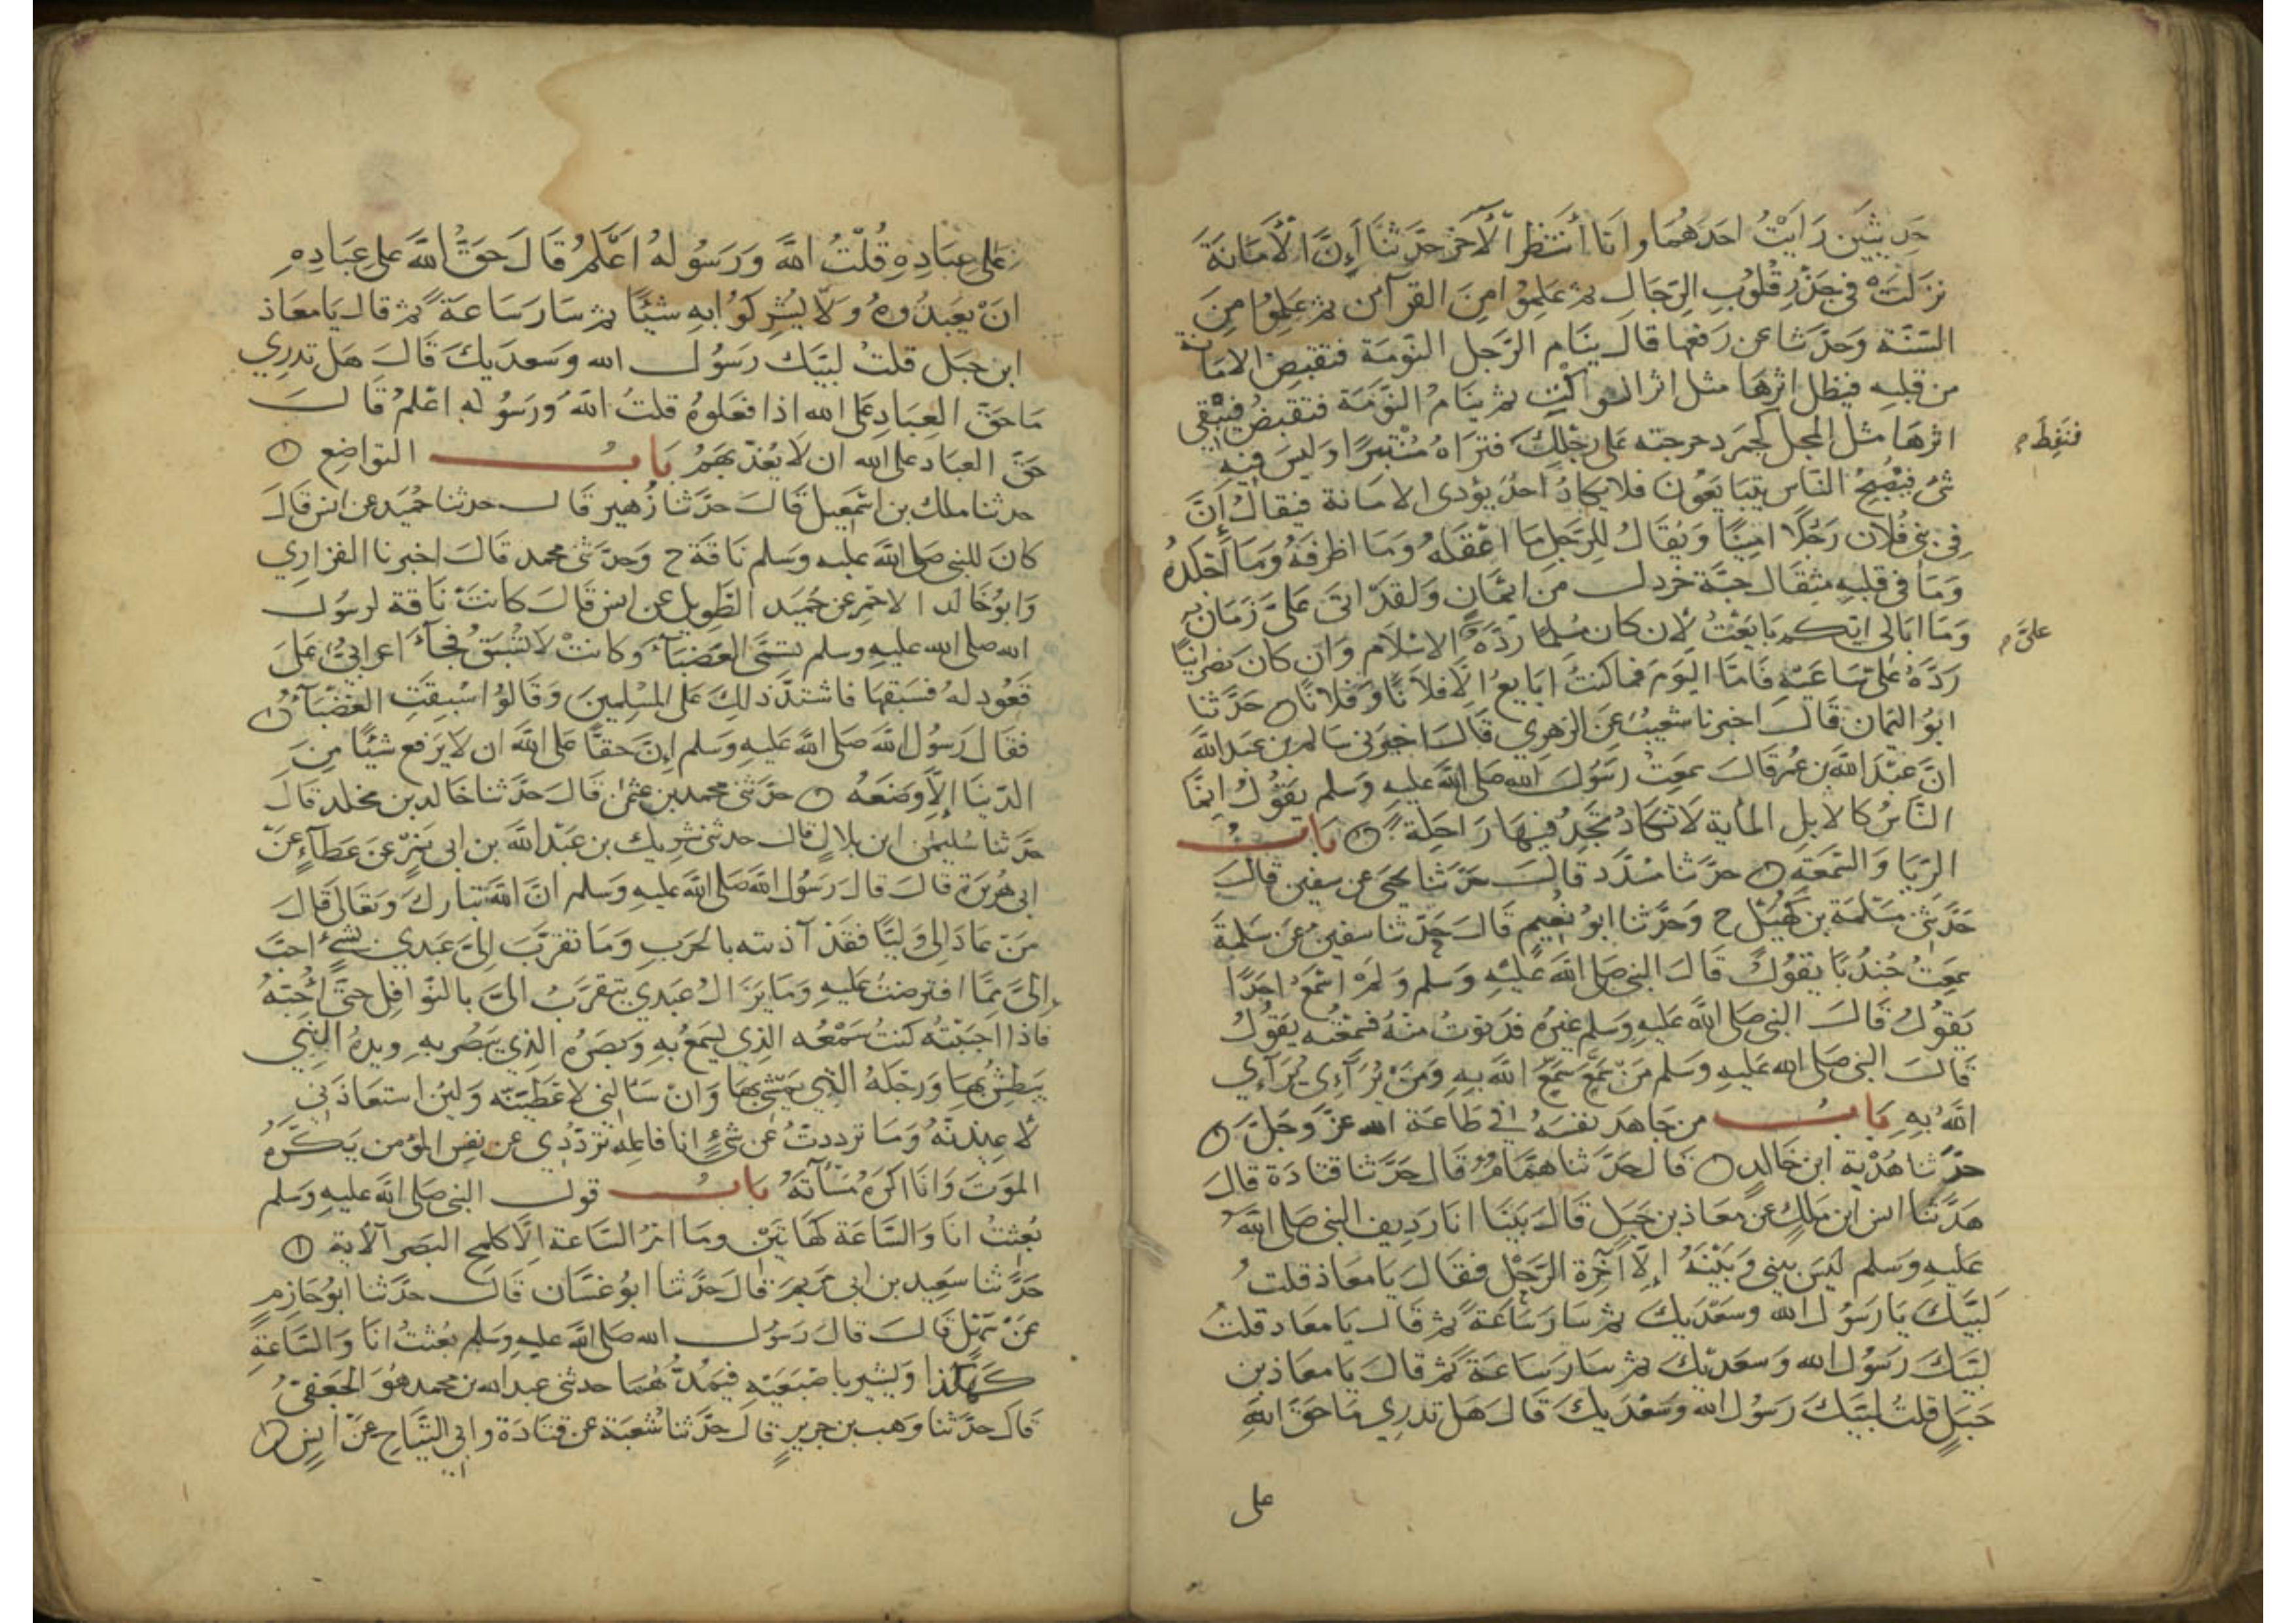 حَدِيثَيْنِ رَأيْتُ احَدَهُمَا وانَا أنتظرُ الآخر حدَّثنَا أنَّ الأمَانَةَ
نَزلَتْ في جَذْرِ قلُوبِ الرّجَالِ ثم عَلِمُوا مِنَ القرآن ثم عَلِمُوا مِنَ
السّنّة وَحَدّثنَا عن رَفعِهَا قال ينَام الرّجل النّومَة فتقبض الامَانة
من قلبه فيظل اثرهَا مثل اثر الوكْتِ ثم ينَامُ النّومَة فتقبضُ فيبْقى
اثرهَا مثل المجل كجمر دحرجته على رجْلك فتراهُ مُنْتَبرًا وليسَ فيه
فنَفِطَ
شئ فيُصْبِحُ النّاس يتبَايعُونَ فلا يكادُ احَدٌ يؤدى الامانة فيقالُ إنَّ
في بنى فُلان رَجُلًا امينًا وَيُقالُ للرّجُلِ مَا اعْقلهُ ومَا اظرفَهُ وَمَا اجْلدهُ
وَمَا في قلبهِ مثقال حبّة خردل من ايمَانٍ وَلقدْ اتى عَليَّ زَمَانٌ
وَمَا ابَالى ايّكم بَايَعْتُ لئن كان مُسْلمًا رَدَّهُ الاسْلام وَان كان نصْرانيًّا
عليَّ
رَدَّهُ عَلىّ سَاعيه فامّا اليَوم فما كنتُ ابَايعُ الّا فلانًا وَفلانًا حَدَّثنَا
ابُو اليمَان قال اخبرنا شعيبٌ عَنِ الزهري قال اخبرني سَالم بن عبدالله
انَّ عَبْدَ اللهِ بن عُمر قال سمعتُ رسُول الله صلى الله عليه وَسلم يقولُ انّما
النّاسُ كالابِل المأية لا تكادُ تجدُ فيهَا رَاحِلة بَابُ
الرّيَا وَالسّمْعَة حدَّثنَا مُسَدَّد قال حدَّثنا يحيى عن سفين قال
حَدّثنى سَلمة بن كُهَيْل ح وَحدَّثنا ابُو نُعيم قال حَدّثنا سفين عَن سَلمة
سَمِعَتُ جُندُبًا يقُولُ قال النبي صلى الله عليه وسلم وَلمْ اسْمع احَدًا
يَقولُ قال النبي صلى الله عليه وسلم غيرهُ فدنوتُ منْهُ فسمعْته يقولُ
قال النبي صلى الله عليه وسلم مَنْ سَمَّعَ سَمّعَ اللهُ بهِ ومَنْ يُرَآءِى يُرَآءِي
اللهُ بهِ بَابُ من جَاهدَ نفسَهُ في طاعَة الله عزّ وجَلّ
حدّثنا هُدْبَة ابن خالِدٍ قال حَدَّثنا همّامٌ قال حدَّثنا قتادَة قال
حدَّثنا انس ابن ملكٍ عن معَاذ بن جَبلٍ قال بَيْنَا انا رَديف النبي صلى الله
عَليهِ وَسلم ليسَ بيني وَبيْنهُ إلّا آخِرة الرّحْل فقال يا معَاذ قلتُ
لبّيْكَ يا رسُول الله وسَعْدَيكَ ثم سَارَ سَاعَة ثم قال يا معَاذ قلتُ
لبّيْكَ رَسُول الله وَسَعديْكَ ثم سَارَ سَاعَة ثم قال يا معَاذ بن
جَبَلٍ قلتُ لبّيْكَ رَسُول الله وسَعْدَيكَ قال هَل تدرِي مَا حَقّ اللهِ
على
على عِبَادِهِ قُلتُ اللهُ وَرَسُولهُ اعْلَمُ قالَ حَقّ الله على عبَادِهِ
انْ يَعْبدُوهُ وَلَا يُشركُوا بهِ شيْئًا ثم سَارَ سَاعَةً ثم قال يَا معَاذ
ابن جَبَل قلتُ لبّيْك رَسُول الله وَسَعديكَ قال هَل تدرِي
مَا حَقّ العِبَادِ على الله اذا فعَلوهُ قلتُ اللهُ وَرَسُوله اعْلمُ قال
حَقّ العبَاد على الله ان لا يُعَذّبهُمْ بَابُ التواضِع
حدثنا ملك بن اسْمعيل قال حدَّثنا زُهير قال حدثنا حُمَيد عن انس قال
كانَ للنبي صلى الله عليه وسلم ناقة ح وَحدّثنى محمد قال اخبرنا الفزاري
وَابُو خَالد الاحمر عن حُمَيد الطّويل عن انس قال كانتْ نَاقة لرسُول
الله صلى الله عليه وسلم تسَمَّى العَضبَآء وكانتْ لا تُسْبَقُ فجآء اعرابيٌّ عَلى
قَعُود لهُ فسَبقهَا فاشتدّ ذلكَ على المُسْلمينَ وَقالوُا سُبِقَتِ العَضْبَآءُ
فقال رَسُول الله صلى الله عليه وسلم إنّ حقًّا على الله ان لا يَرفع شيْئًا مِنَ
الدّنيَا إلّا وضعَهُ حدّثنى محمد بن عثمن قال حدَّثنا خالد بن مخلد قال
حدّثنا سُليمٰن ابن بلالٍ قال حدثنى شريك بن عَبْد الله بن ابى نمرٍ عَن عَطآءٍ عَنْ
ابى هُرَيرَة قال قال رَسُول الله صلى الله عليه وسلم انّ الله تبَارك وتعَالى قال
مَنْ عَادَا لى وَليًّا فقدْ آذنته بالحَربِ وَمَا تقرّبَ إليّ عَبدي بشيْءٍ احبَّ
إليَّ ممّا افترضتُ عليهِ وَمَا يَزالُ عبدي يتقرّبُ اليّ بالنوَافِل حتّى احُبّهُ
فاذا احبَبْتُه كنتُ سَمْعُه الذِي يسمَعُ بهِ وَبَصَرُه الذِي يَبْصر بهِ ويدهُ التِي
يَبطِشُ بهَا وَرجْلهُ التِي يمشى بهَا وَانْ سَألني لاعْطيَنّه وَلئن استعَاذنى
لأعيذنّهُ وَمَا تردّدتُ عَن شئٍ انا فاعله تردّدِي عن نفس المؤمن يَكرَهُ
الموَتَ وَانَا اكرَهُ مَسْآتَهُ بَابُ قول النبي صلى الله عليه وسلم
بُعثتُ انا وَالسّاعَة كهَاتين ومَا امْرُ السّاعَة الّا كلمح البَصَر الآية
حَدَّثنَا سَعِيد بن ابى مَريَم قال حَدَّثنا ابُو غسّان قال حدَّثنا ابُو حَازم
عَنْ سَهْلٍ قال قال رَسُول الله صلى الله عليه وسلم بُعثتُ انَا وَالسّاعَة
كَهكذا وَيشير باصْبَعَيْه فيَمُدُّ هُمَا حدثنى عبدالله بن محمد هُوَ الجعفيّ
قال حدّثنَا وَهب بن جريرٍ قال حَدَّثنا شُعبَة عن قتَادَة وابي التيّاح عَنْ انَسٍ